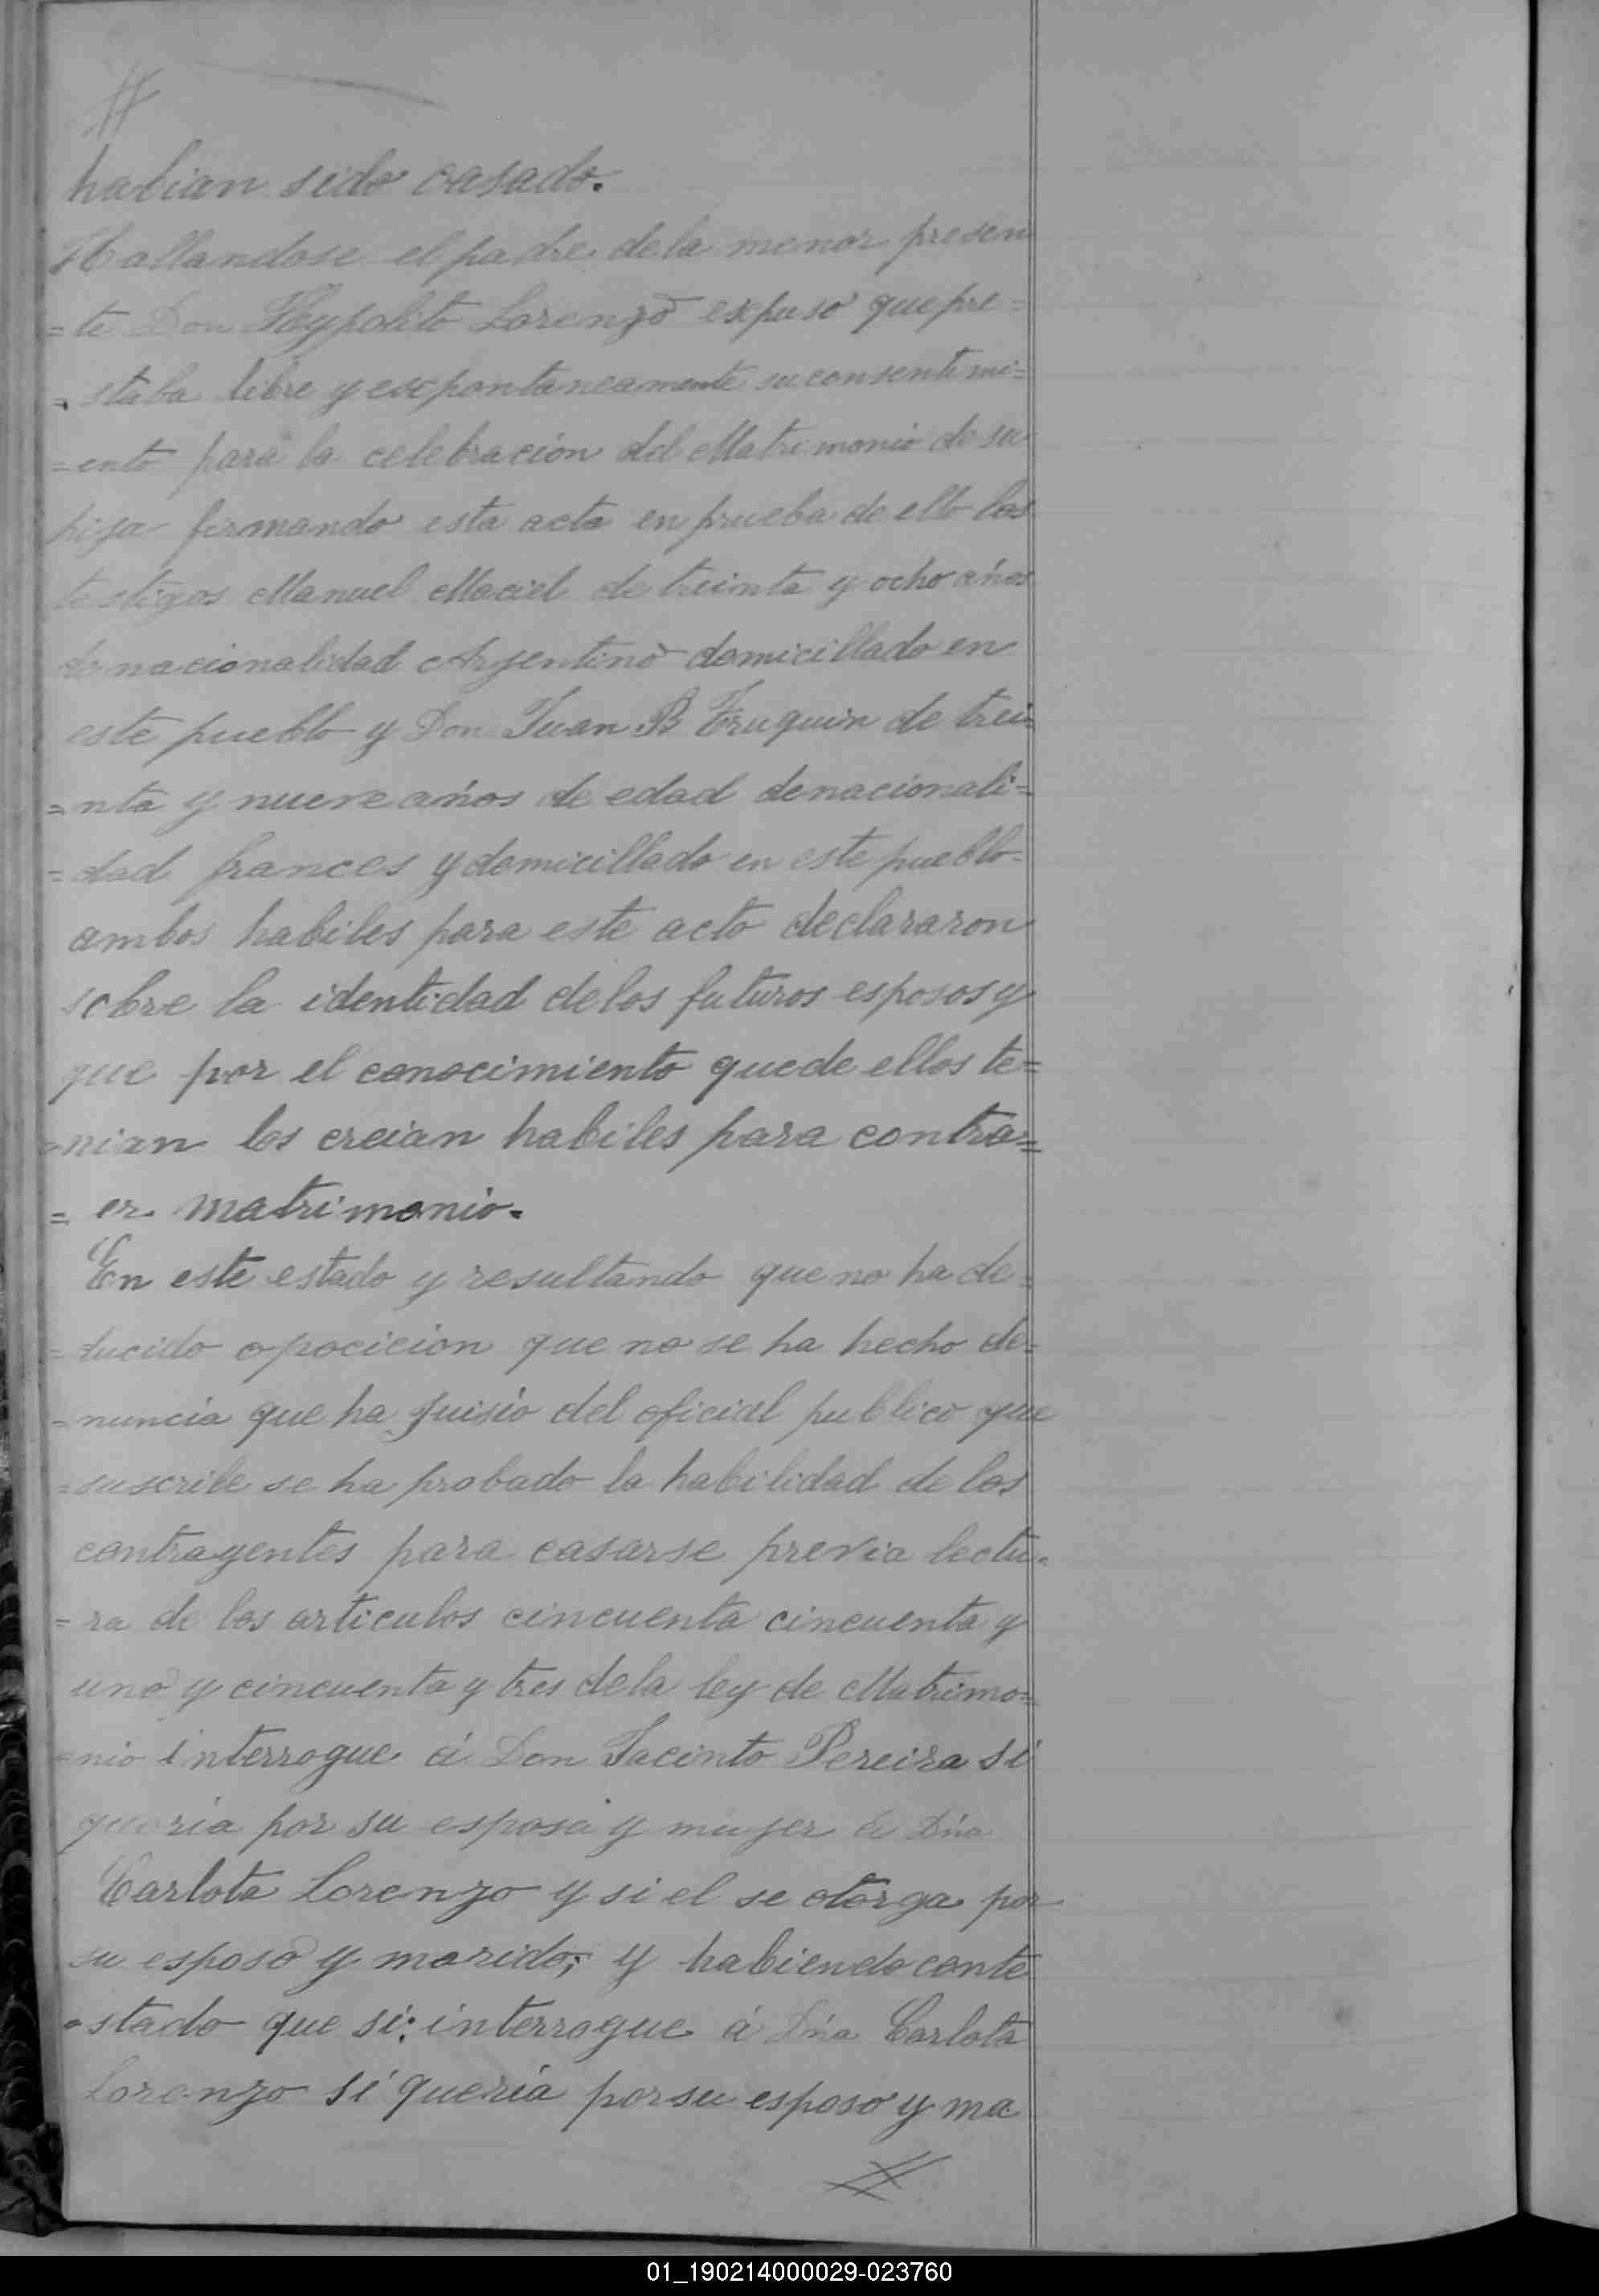 habian sido casado.
Hallandose el padre dela menor presen
=te Don Hypolito Lorenzo expuso que pre=
=staba libre y expontaneamente su consentimi=
=ento para la celebracion del Matrimonio de su
hija firmando esta acta en prueba de ello los
testigos Manuel Maciel de treinta y ocho años
de nacionalidad Argentino domicillado en
este pueblo y Don Juan B de trei=
=nta y nueve años de edad de nacionali=
=dad frances y domicillado en este pueblo
ambos habiles para este acto declararon
sobre la identidad de los futuros esposos y
que por el conocimiento que de ellos te=
=nian los creian habiles para contra=
=er matrimonio.
En este estado y resultando que no ha de=
=ducido opocicion que no se ha hecho de=
=nuncia que ha juisio del oficial publico que
=suscribe se ha probado la habilidad de los
contrayentes para casarse previa lectu=
=ra de los articulos cincuenta cincuenta y
uno y cincuenta y tres dela ley de Matrimo=
=nio interrogue á Don Jacinto Pereira si
queria por su esposa y mujer á Dña
Carlota Lorenzo y si el se otorga por
su esposo y marido; y habiendo conte
=stado que si: interrogue á Dña Carlota
Lorenzo si queria por su esposo y ma
01_190214000029-023760